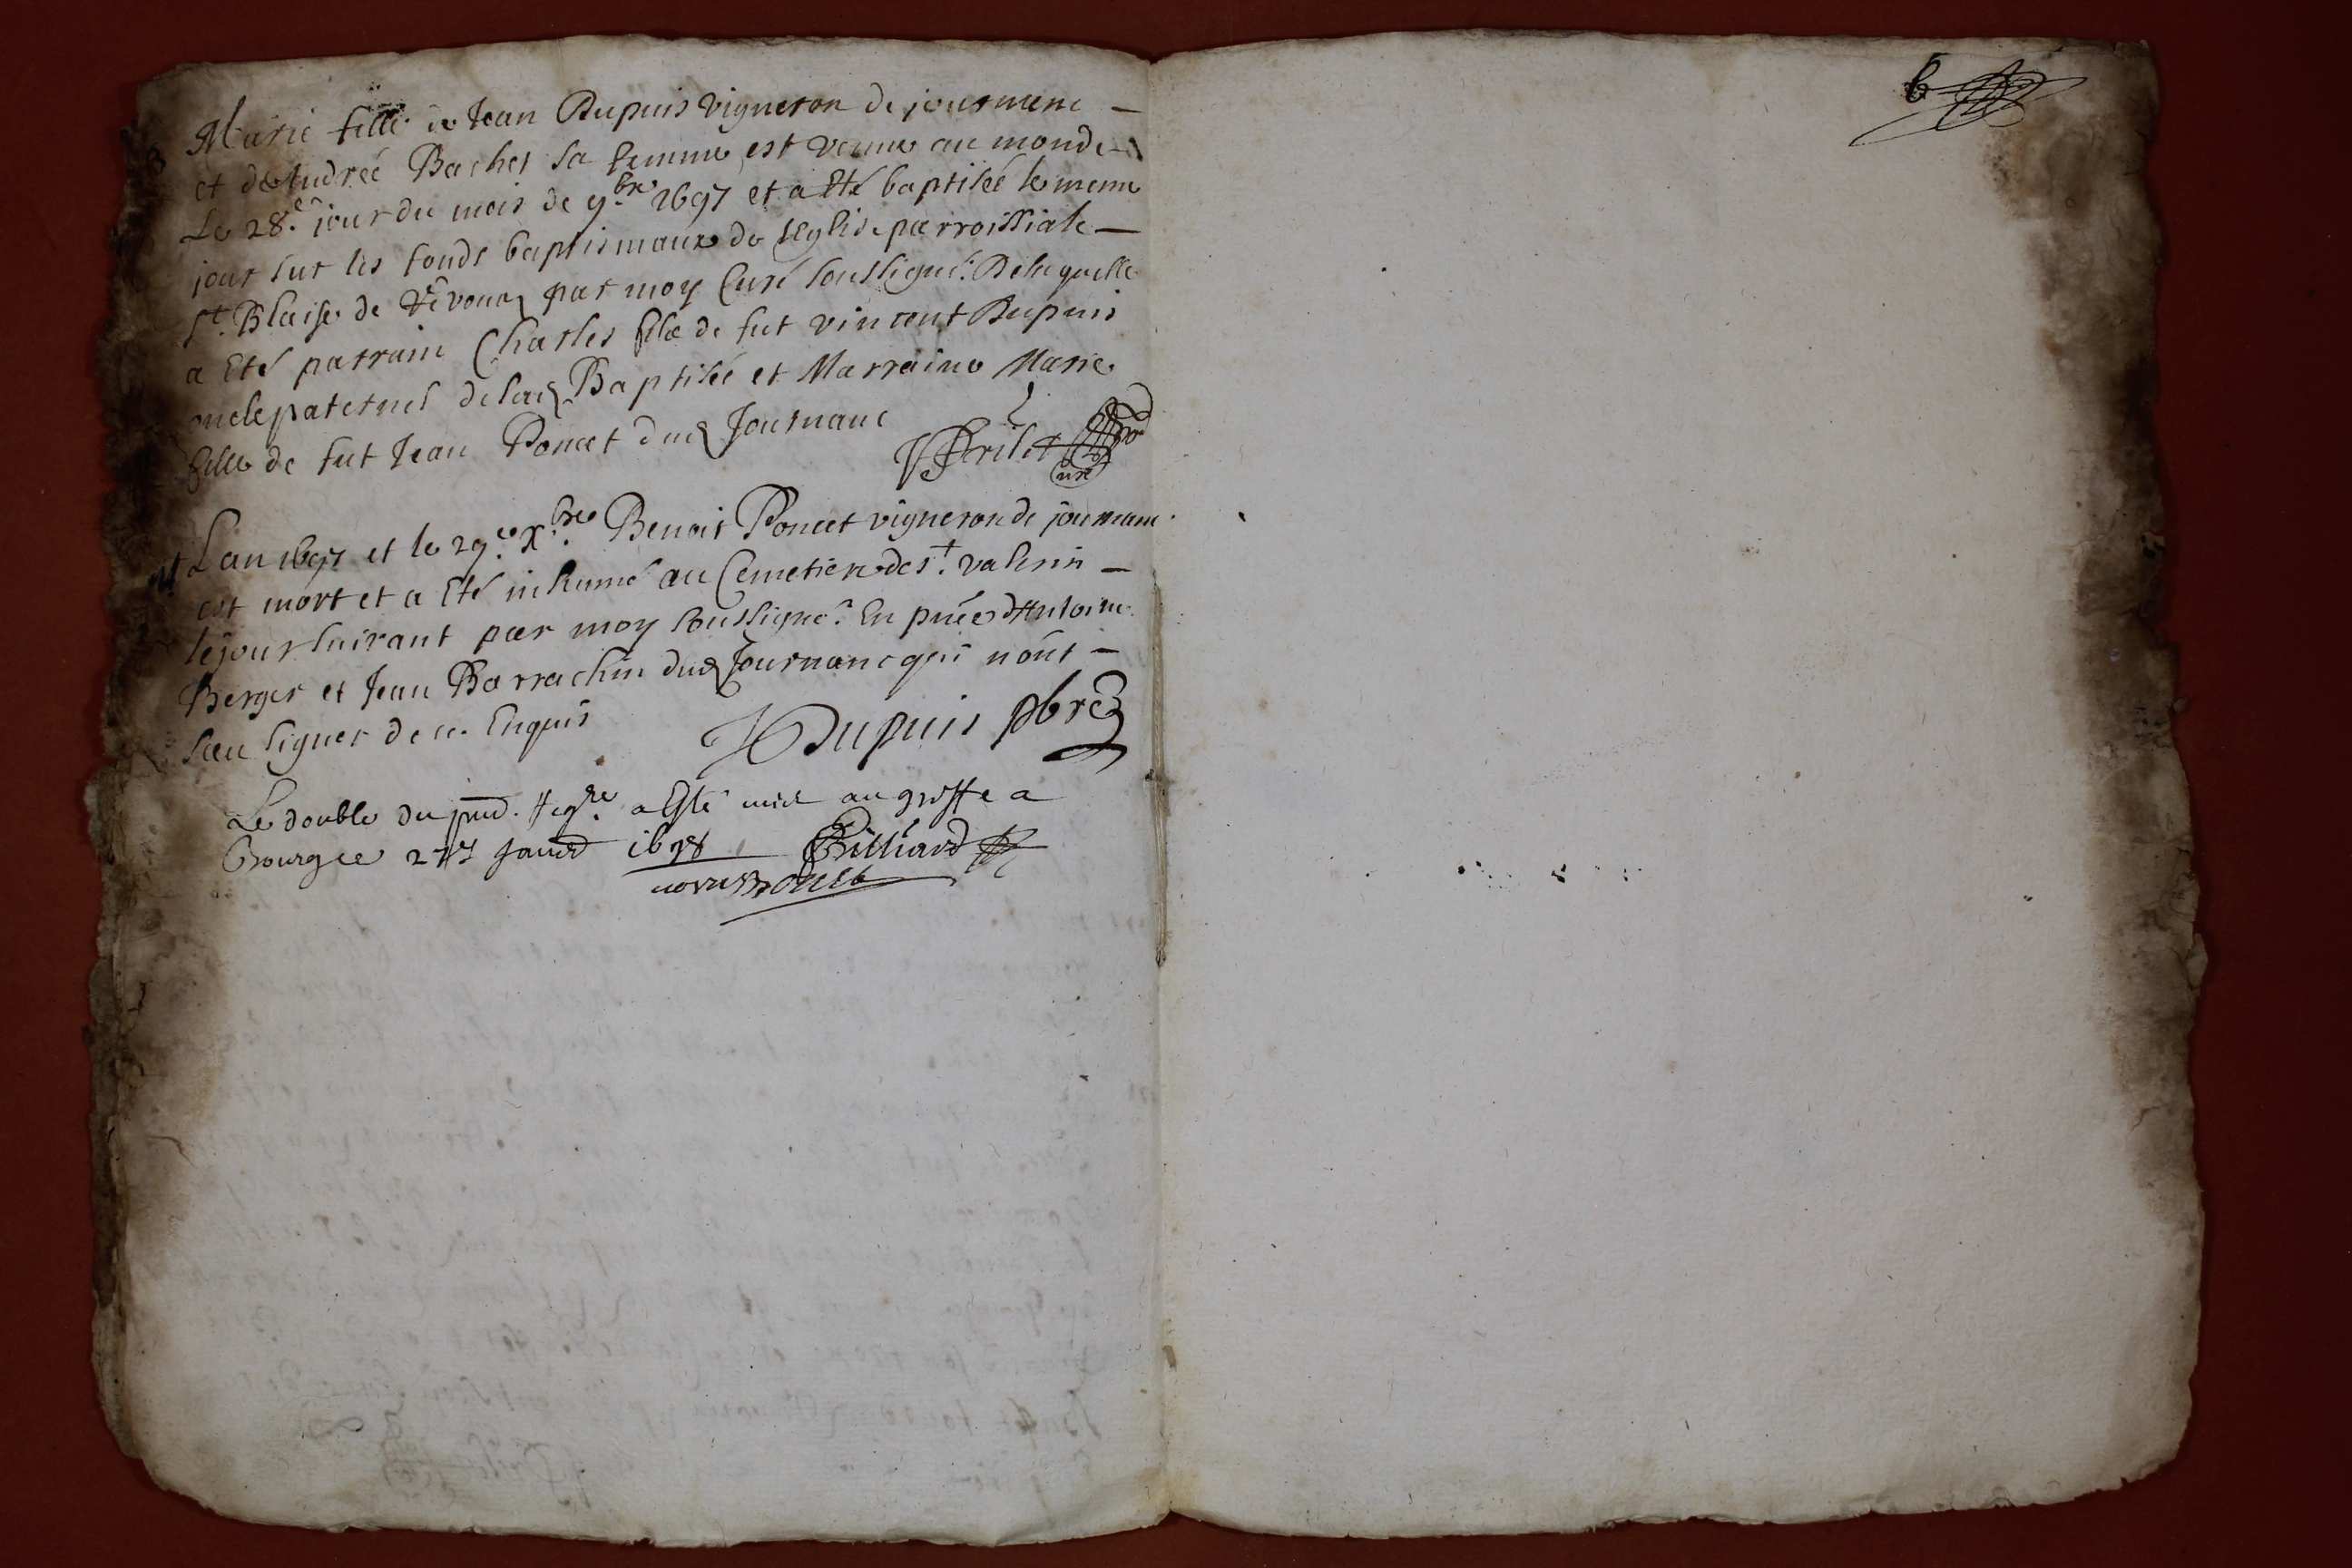 B
Marie fille de Jean Dupuis vigneron de journanc –
et de Andreé Bachet sa femme est venue au monde –
Le 28.e jour du mois de 9.bre 1697 et a Eté baptiseé le meme
jour sur les fonds baptismaux de l'Eglise parroissiale –
St. Blaise de Révonas par moy Curé soussigné. De laquelle
a Eté parrain Charles fils de fut vincent Dupuis
oncle paternel de lad Baptiseé et Marraine Marie
fille de fut Jean Poncet dud Journanc
Curé
M L'an 1697 et le 29.e X.bre Benoit Poncet vigneron de journanc
est mort et a Eté inhumé au Cemetiere de st. valerin –
le jour suivant par moy soussigné. En pnce d'Antoine
Berger et Jean Barrachin dud Journanc qui n'ont –
sceu signer de ce Enquis
Dupuis pbre
Le double du pnt. Regre a Esté mis au greffe a
Bourg ce 27 Janv 1698 Billiard
b